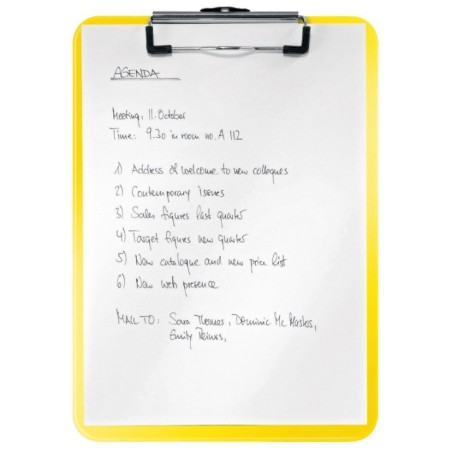 AGENDA
Meeting: 11. October
Time: 9.30 in room no. A 112
1) Address of welcome to new collegues
2) Contemporary issues
3) Sales figures last quarter
4) Target figures new quarter
5) New catalogue and new price list
6) New web presence
MAIL TO: Sara Thomas, Dominic Mc Masters,
Emily